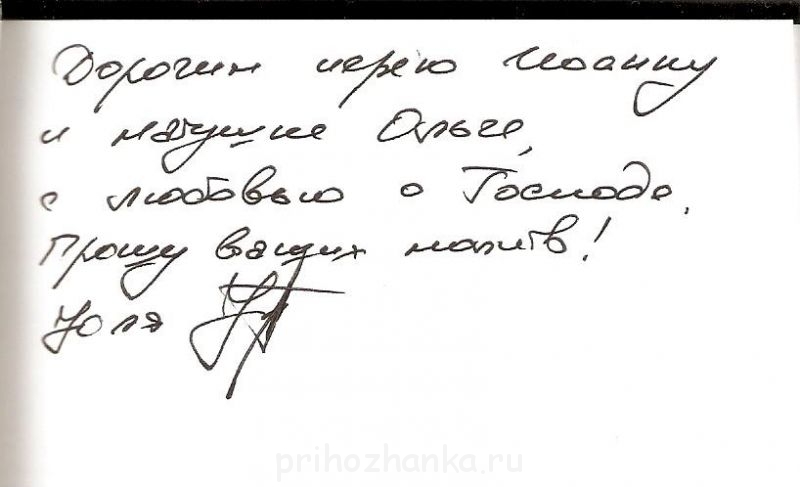 Дорогим иерею Иоанну
и матушке Ольге,
с любовью о Господе.
Прошу ваших молитв!
Юля
prihozhanka.ru